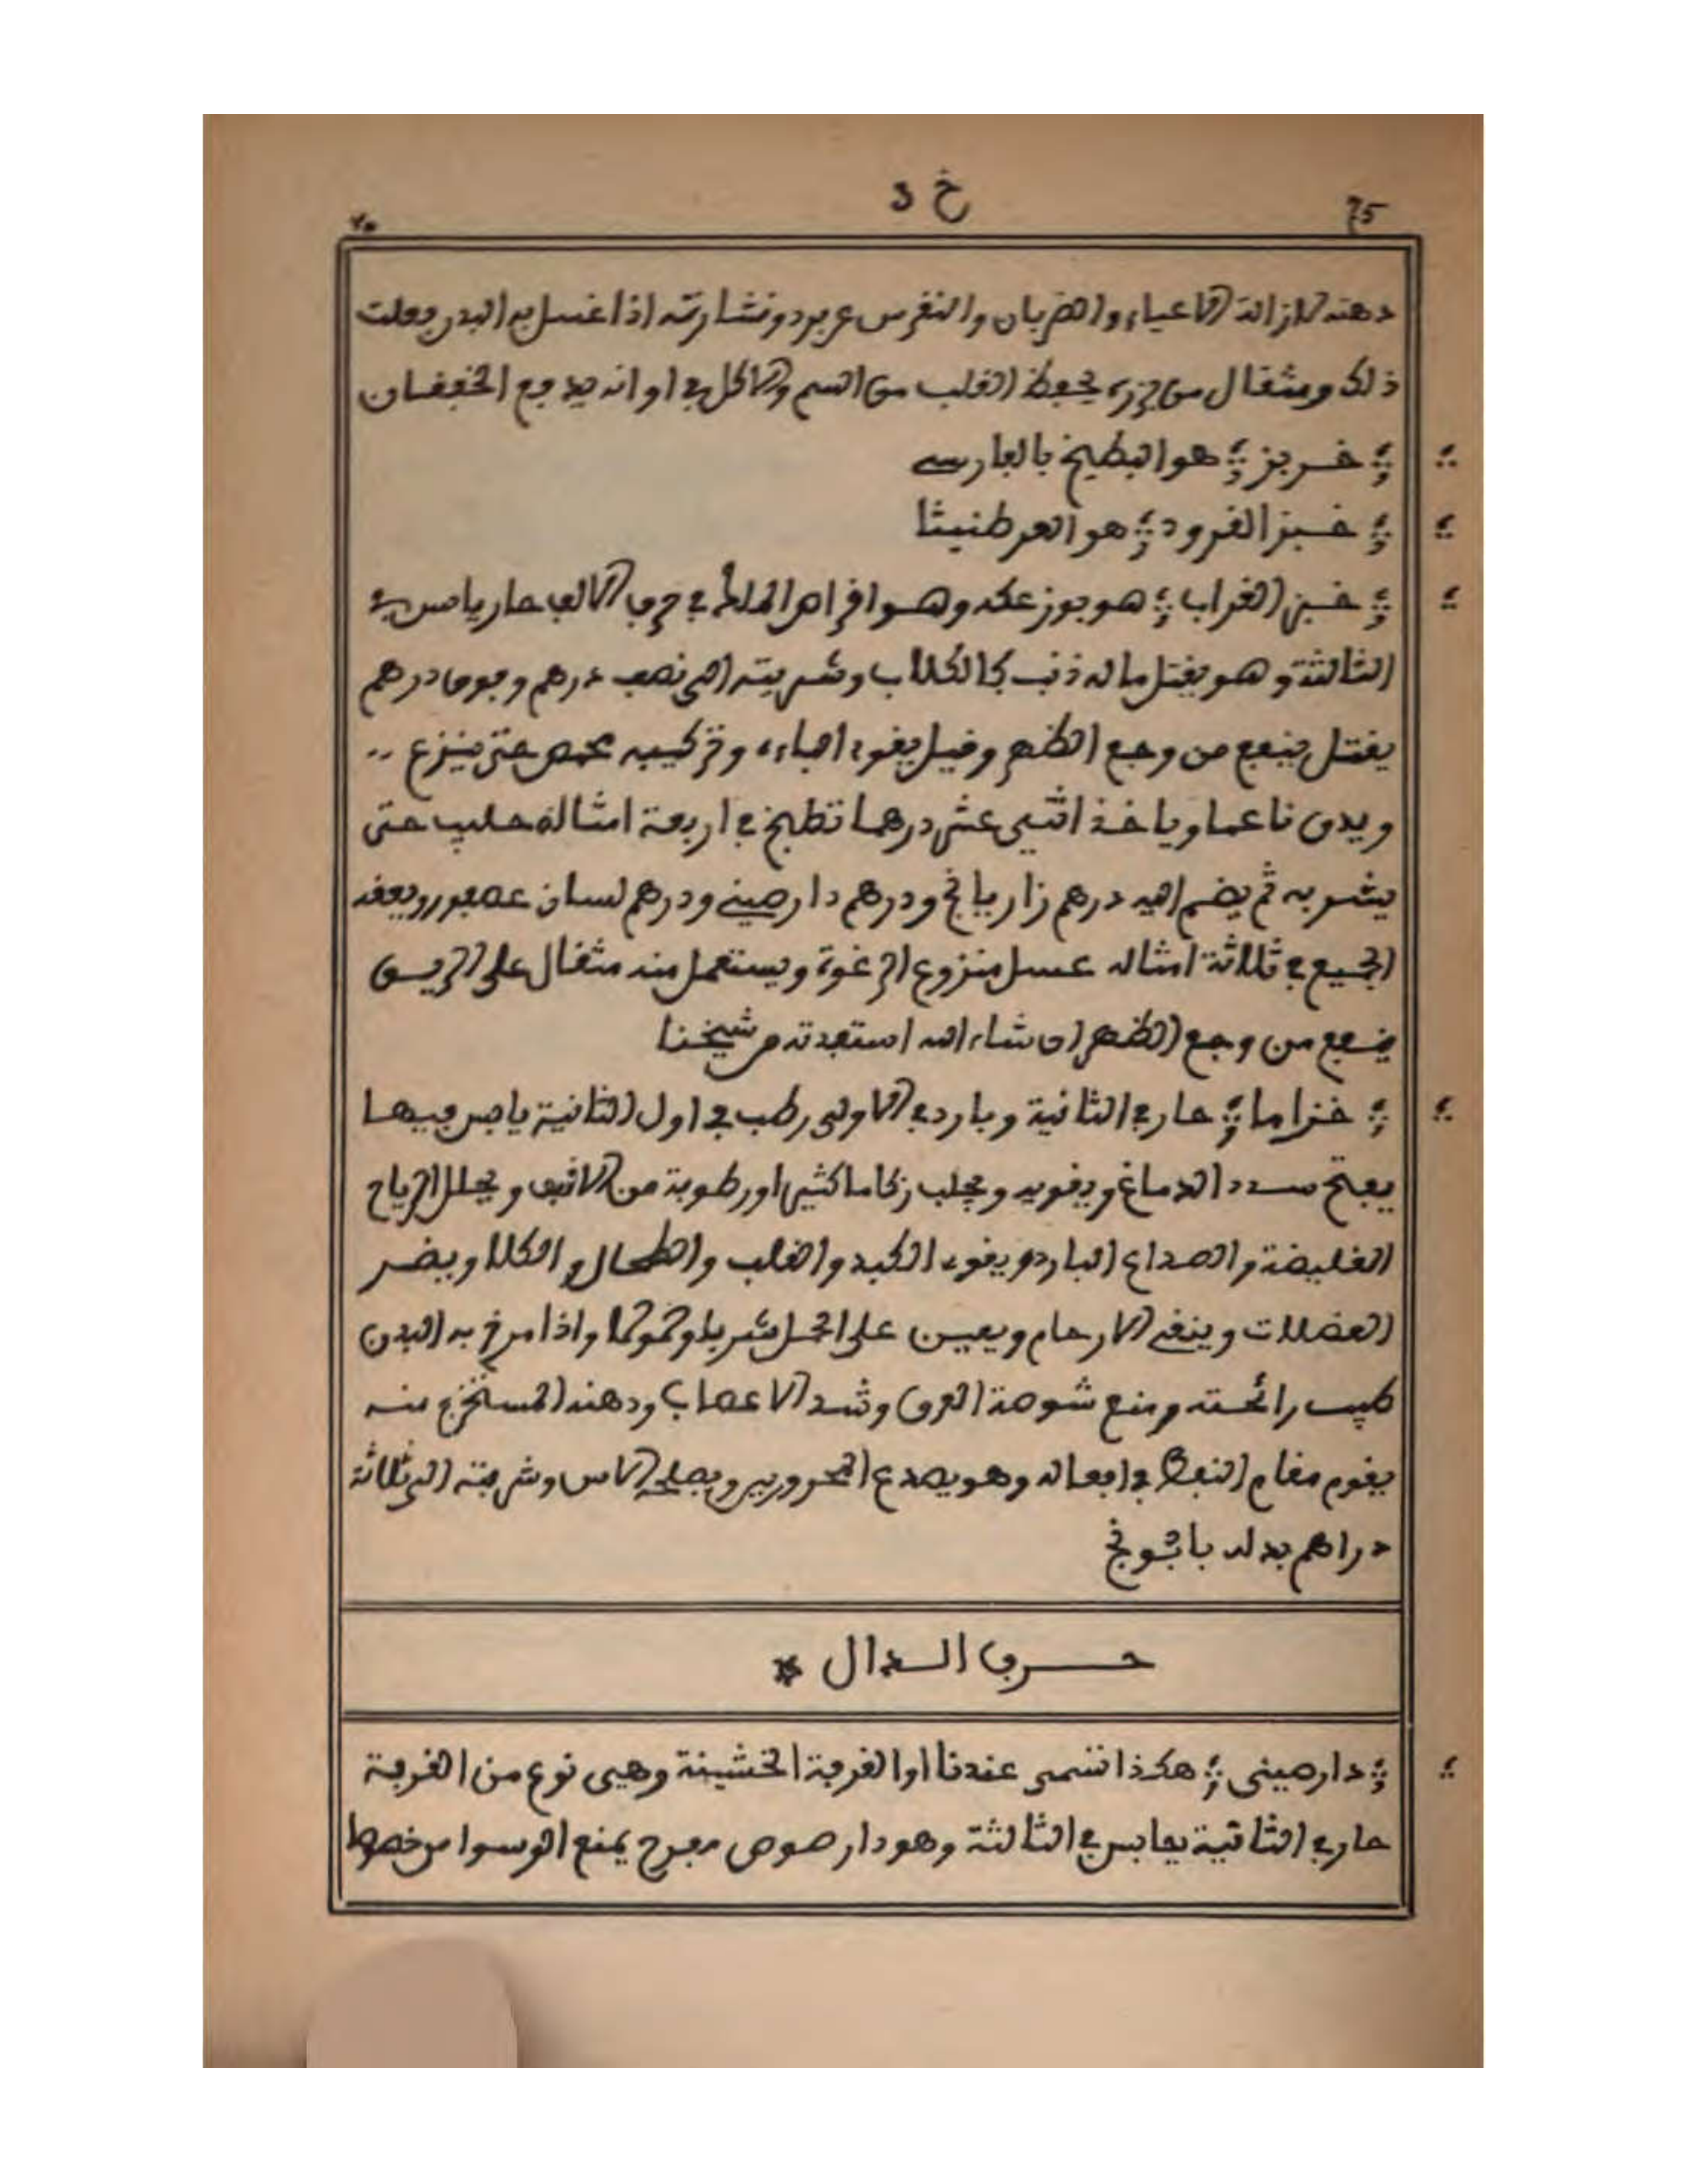 75 خ د ٧٥
دهنه لازالة الاعياء والضربان والنقرس عن برد ونشارته اذا غسل به البدن فعلت
ذلك ومثقال من حبه يحفظ القلب من السم والاكل في اوانه يدفع الخفقان
؛ خربز ؛ هو البطيخ بالفارسي
؛ خبز القرود ؛ هو العرطنيثا
؛ خبز الغراب ؛ هو جوز عكه وهو اقراص الملك في حرف الالف حار يابس في
الثالثة وهو يقتل ما له ذنب كالكلاب وشربته الى نصف درهم وفوق درهم
يقتل ينفع من وجع الظهر وقيل يقوي الباءة وتركيبه يحمص حتى ينزع ..
ويدق ناعما وياخذ اثني عشر درهما تطبخ في اربعة امثاله حليب حتى
يشربه ثم يضم اليه درهم زاريانج ودرهم دارصيني ودرهم لسان عصفور ويعقد
الجميع في ثلاثة امثاله عسل منزوع الرغوة ويستعمل منه مثقال على الريق
ينفع من وجع الظهر ان شاء الله استفدته من شيخنا
؛ خزاما ؛ حار في الثانية وبارد في الاولى رطب في اول الثانية يابس فيها
يفتح سدد الدماغ ويقويه ويجلب زكاما كثيرا ورطوبة من الانف ويحلل الرياح
الغليضة والصداع البارد ويقوي الكبد والقلب والطحال والكلا ويضر
العضلات وينقي الارحام ويعين على الحمل شربا وحمولا واذا مرخ به البدن
طيب رائحته ومنع شوصة العرق وشد الاعصاب ودهنه المستخرج منه
يقوم مقام النفط في افعاله وهو يصدع المحرورين ويصلحه الاس وشربته الى ثلاثة
دراهم بدله بابونج
حرف الدال *
؛ دارصيني ؛ هكذا تسمى عندنا او القرفة الخشينة وهي نوع من القرفة
حار في الثانية يابس في الثالثة وهو دار صوص مفرح يمنع الوسواس خصوصا